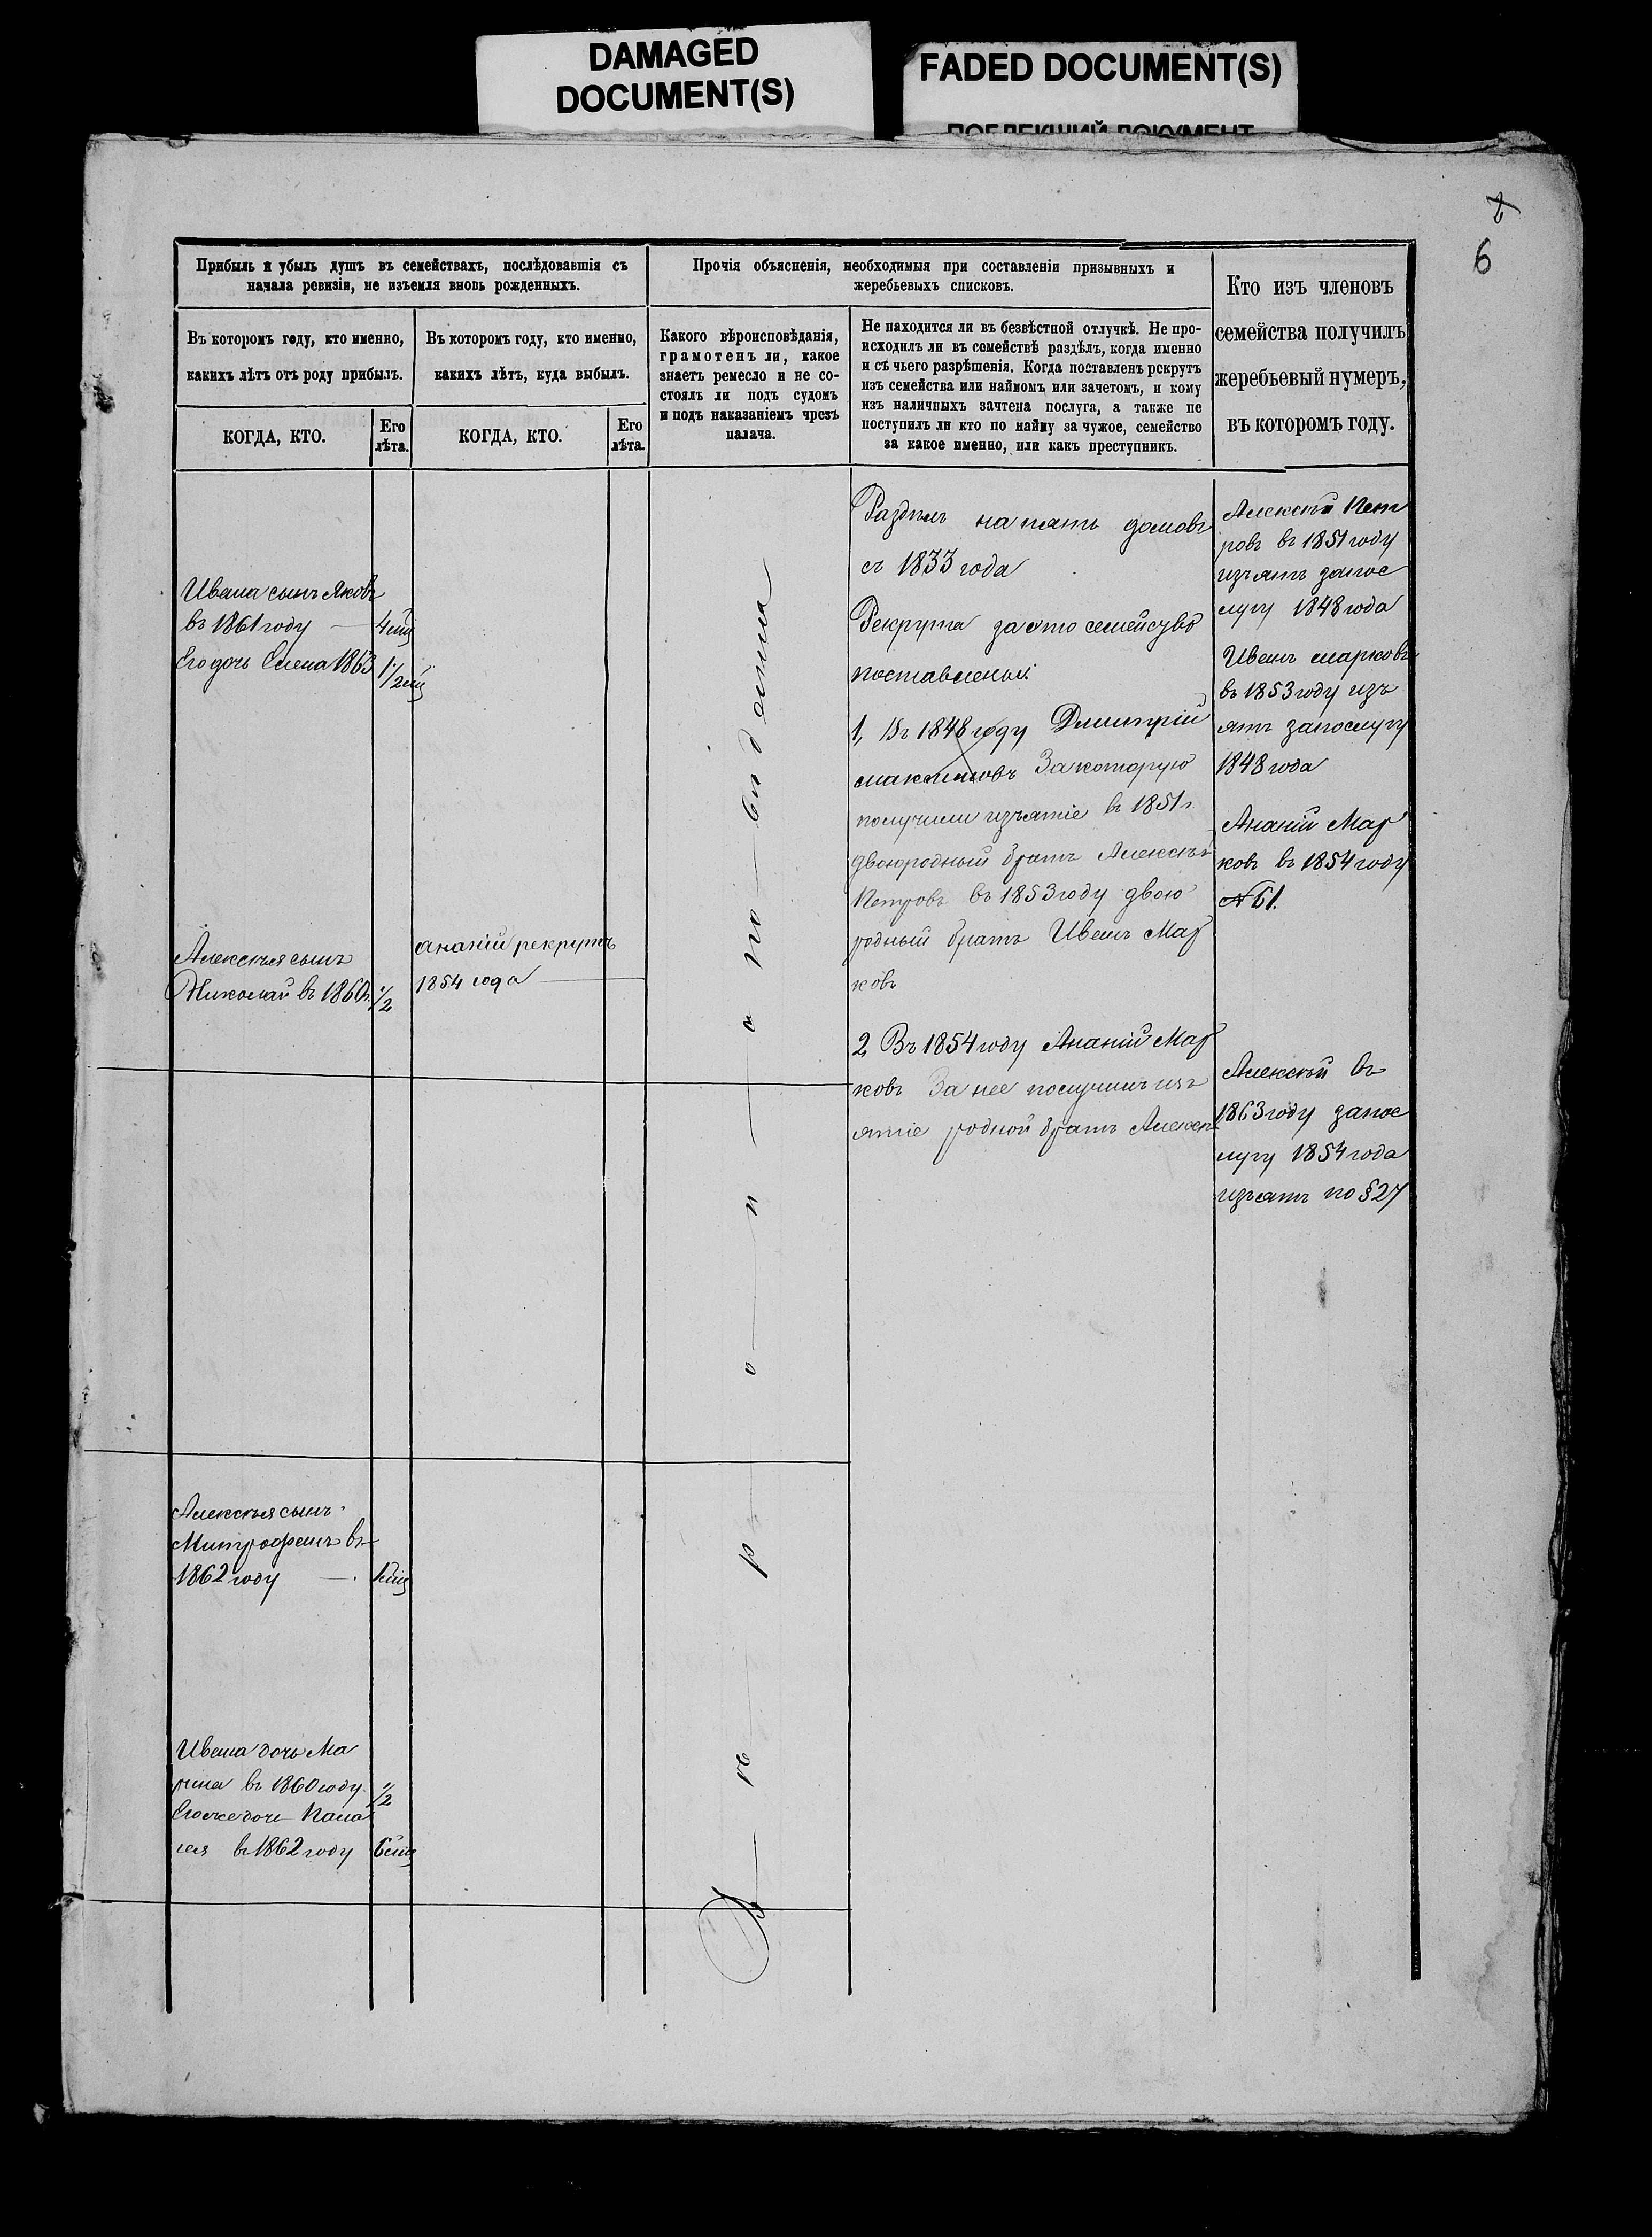 DAMAGED
DOCUMENT(S)
FADED DOCUMENT(S)
ПОБЛЕКШИЙ ДОКУМЕНТ
2
6
Прибыль и убыль душъ въ семействахъ, послѣдовавшія съ
начала ревизіи, не изъемля вновь рожденныхъ.
Въ которомъ году, кто именно,
какихъ лѣтъ отъ роду прибылъ.
КОГДА, КТО.
Его
лѣта.
Въ которомъ году, кто именно,
какихъ лѣтъ, куда выбылъ.
КОГДА, КТО.
Его
лѣта.
Прочія объясненія, необходимыя при составленіи призывныхъ и
жеребьевыхъ списковъ.
Какого вѣроисповѣданія,
грамотенъ ли, какое
знаетъ ремесло и не со-
стоялъ ли подъ судомъ
и подъ наказаніемъ чрезъ
палача.
Не находится ли въ безвѣстной отлучкѣ. Не про-
исходилъ ли въ семействѣ раздѣлъ, когда именно
и съ чьего разрѣшенія. Когда поставленъ рекрутъ
изъ семейства или наймомъ или зачетомъ, и кому
изъ наличныхъ зачтена послуга, а также не
поступилъ ли кто по найму за чужое, семейство
за какое именно, или какъ преступникъ.
Кто изъ членовъ
семейства получилъ
жеребьевый нумеръ,
въ которомъ году.
Ивана сынъ Яковъ
въ 1861 году
Его дочь Елена 1863
1 1/2
Алексѣя сынъ
Николай въ 1860 г.
1/2
Алексѣя сынъ
Митрофанъ въ
1862 году
Ивана дочь Ма
рина въ 1860 году
1/2
Его же дочь Пала
гея въ 1862 году
Ананій рекрутъ
1854 года
Раздѣлъ на пять домовъ
съ 1833 года
Рекрута за это семейство
поставлены:
1, Въ 1848 году Дмитрій
Максимовъ За которую
получили изъятіе въ 1851 г.
двоюродный братъ Алексѣй
Петровъ въ 1853 году двою
родный братъ Иванъ Мар
ковъ
2, Въ 1854 году Ананій Мар
ковъ За нее получилъ изъ
ятіе родной братъ Алексѣй
Алексѣй Пет
ровъ въ 1851 году
изъятъ запос
лугу 1848 года
Иванъ Марковъ
въ 1853 году изъ
ятъ запослугу
1848 года
Ананій Мар
ковъ въ 1854 году
№ 61.
Алексѣй въ
1863 году запос
лугу 1854 года
изъятъ по § 27